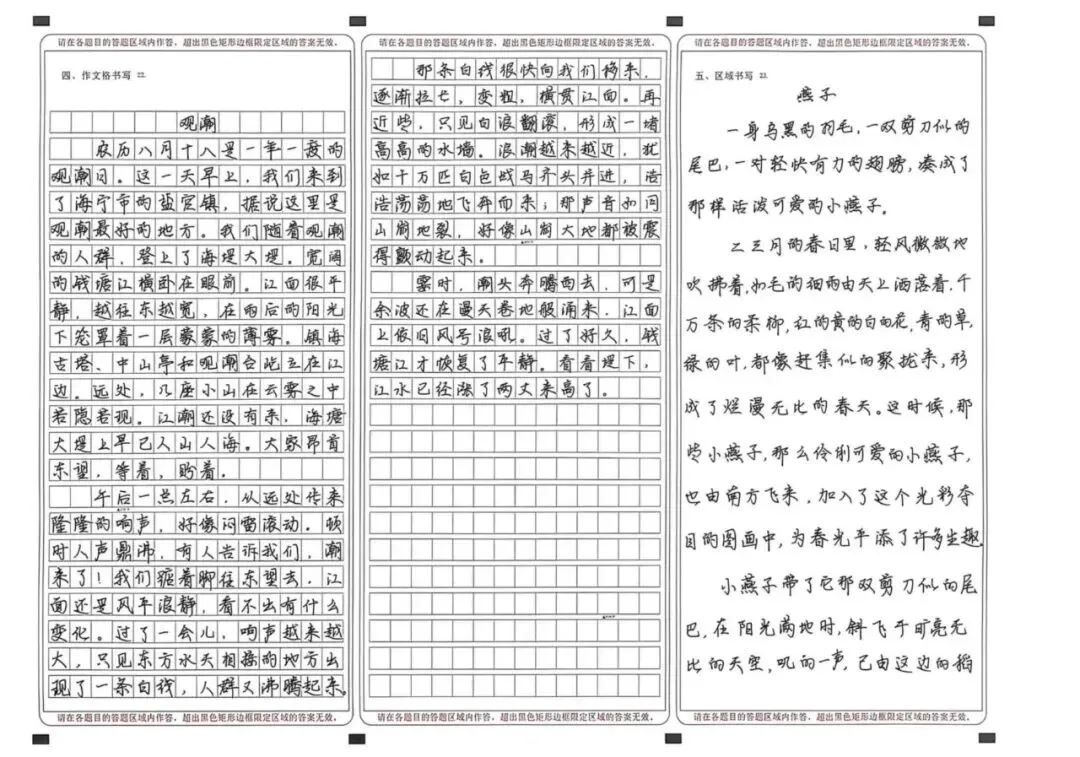 请在各题目的答题区域内作答，超出黑色矩形边框限定区域的答案无效。
四、作文格书写 22.
观潮
农历八月十八是一年一度的
观潮日。这一天早上，我们来到
了海宁市的盐官镇，据说这里是
观潮最好的地方。我们随着观潮
的人群，登上了海堤大堤。宽阔
的钱塘江横卧在眼前。江面很平
静，越往东越宽，在雨后的阳光
下笼罩着一层蒙蒙的薄雾。镇海
古塔、中山亭和观潮台屹立在江
边。远处，几座小山在云雾之中
若隐若现。江潮还没有来，海塘
大堤上早已人山人海。大家昂首
东望，等着，盼着。
午后一点左右，从远处传来
隆隆的响声，好像闷雷滚动。顿
时人声鼎沸，有人告诉我们，潮
来了！我们踮着脚往东望去，江
面还是风平浪静，看不出有什么
变化。过了一会儿，响声越来越
大，只见东方水天相接的地方出
现了一条白线，人群又沸腾起来。
请在各题目的答题区域内作答，超出黑色矩形边框限定区域的答案无效。
请在各题目的答题区域内作答，超出黑色矩形边框限定区域的答案无效。
那条白线很快向我们移来，
逐渐拉长，变粗，横贯江面。再
近些，只见白浪翻滚，形成一堵
高高的水墙。浪潮越来越近，犹
如千万匹白色战马齐头并进，浩
浩荡荡地飞奔而来；那声音如同
山崩地裂，好像山崩大地都被震
得颤动起来。
霎时，潮头奔腾西去，可是
余波还在漫天卷地般涌来，江面
上依旧风号浪吼。过了好久，钱
塘江才恢复了平静。看看堤下，
江水已经涨了两丈来高了。
请在各题目的答题区域内作答，超出黑色矩形边框限定区域的答案无效。
请在各题目的答题区域内作答，超出黑色矩形边框限定区域的答案无效。
五、区域书写 23.
燕子
一身乌黑的羽毛，一双剪刀似的
尾巴，一对轻快有力的翅膀，凑成了
那样活泼可爱的小燕子。
二三月的春日里，轻风微微地
吹拂着，如毛的细雨由天上洒落着，千
万条的柔柳，红的黄的白的花，青的草，
绿的叶，都像赶集似的聚拢来，形
成了烂漫无比的春天。这时候，那
些小燕子，那么伶俐可爱的小燕子，
也由南方飞来，加入了这个光彩夺
目的图画中，为春光平添了许多生趣。
小燕子带了它那双剪刀似的尾
巴，在阳光满地时，斜飞于旷亮无
比的天空，叽的一声，已由这边的稻
请在各题目的答题区域内作答，超出黑色矩形边框限定区域的答案无效。